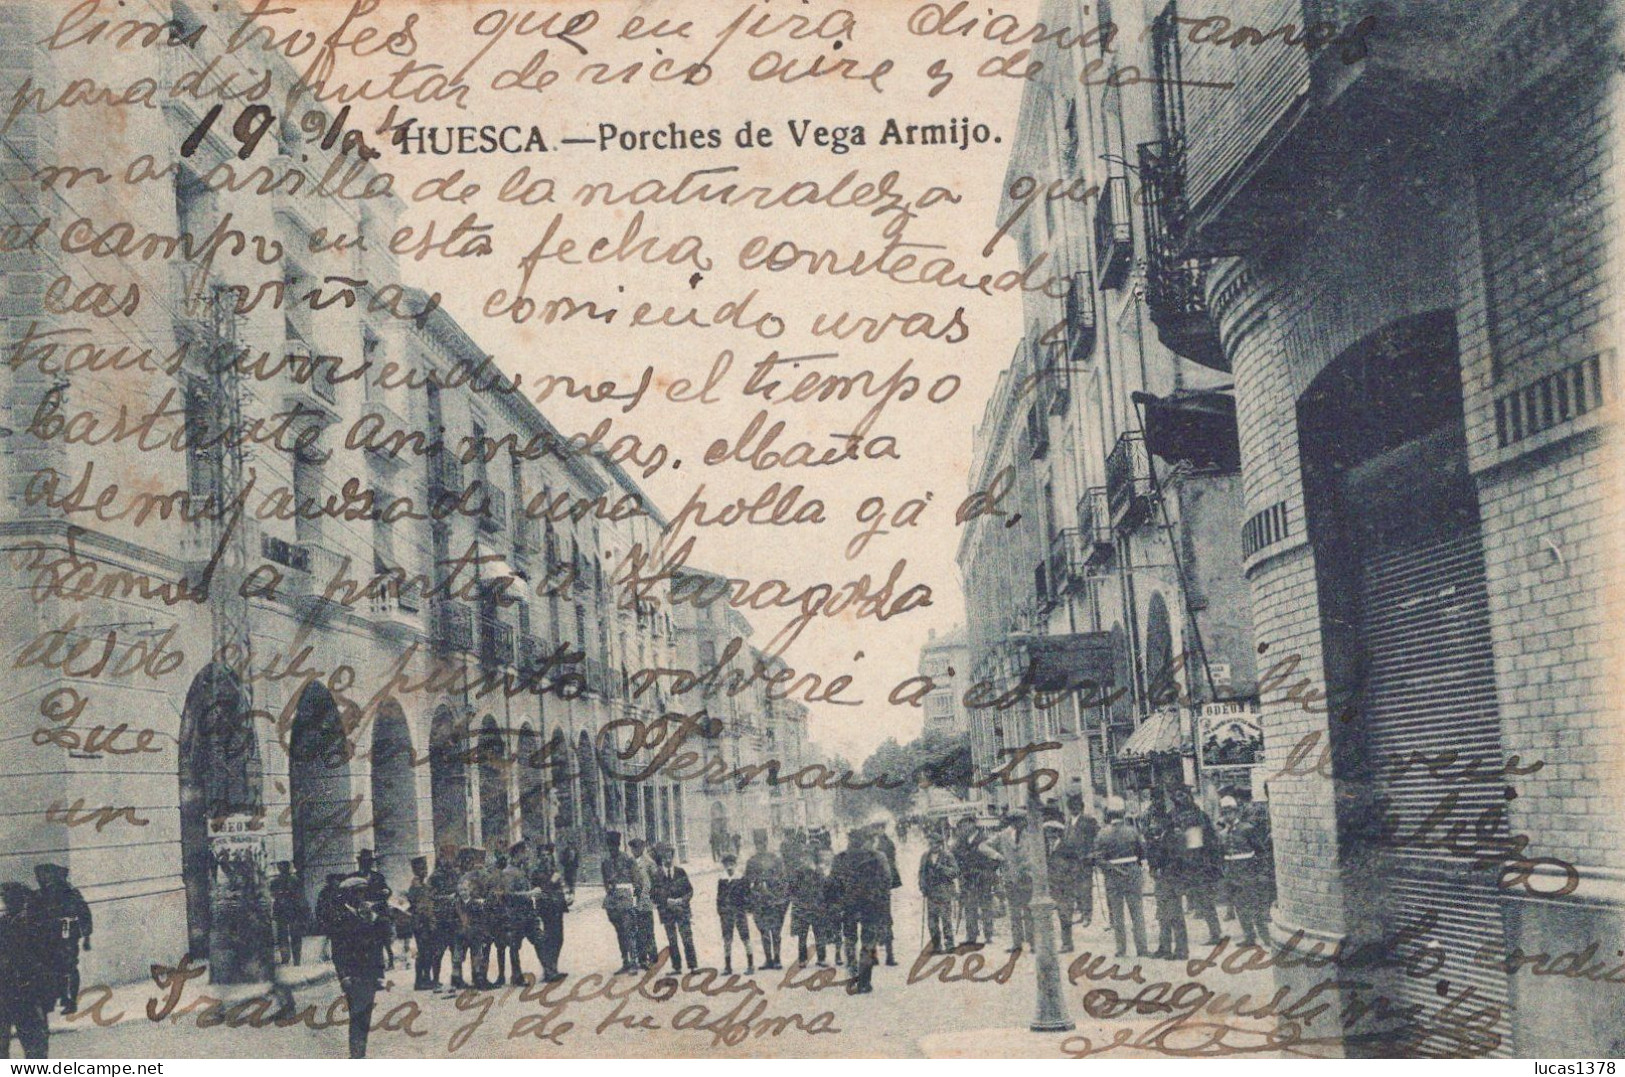 limitrofes que en jira diaria vamos
para disfrutar de rico aire y de la
19 9/a 4 HUESCA.—Porches de Vega Armijo.
maravilla de la naturaleza que
el campo en esta fecha
las viñas comiendo uvas y
transcurriendonos el tiempo
bastante animadas. Maña
asemejanza de una polla
a partir a Zaragoza
desde cuyo punto volveré a
Que Alberta y Fernandito lleven
un
ODEON
ODEON
a Francia y reciban los tres un saludo cordial
de su afma Agustinita